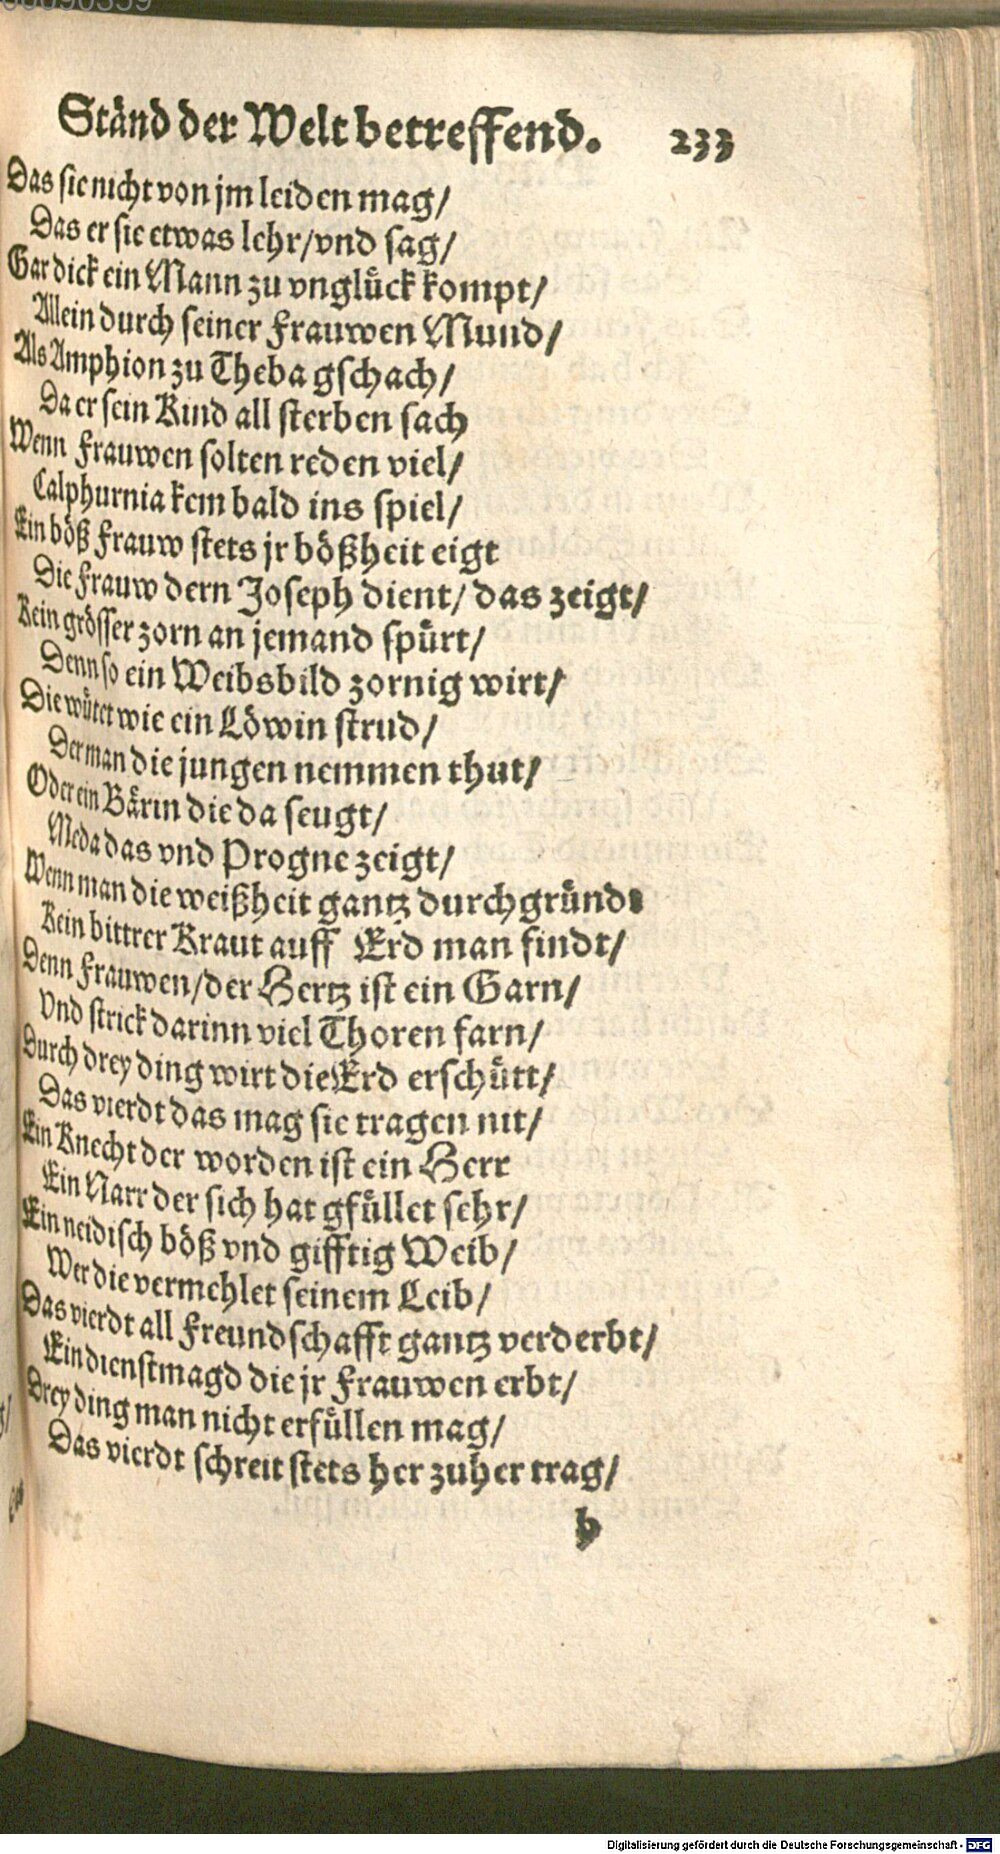 Ständ der Welt betreffend. 233
Das sie nicht von jm leiden mag/
Das er sie etwas lehr/vnd sag/
Gar dick ein Mann zu vnglück kompt/
Allein durch seiner Frauwen Mund/
Als Amphion zu Theba gschach/
Da er sein Kind all sterben sach
Wenn Frauwen solten reden viel/
Calphurnia kem bald ins spiel/
Ein böß Frauw stets jr bößheit eigt
Die Frauw dern Joseph dient/ das zeigt/
Kein grösser zorn an jemand spürt/
Denn so ein Weibsbild zornig wirt/
Die wütet wie ein Löwin strud/
Der man die jungen nemmen thut/
Oder ein Bärin die da seugt/
Meda das vnd Progne zeigt/
Wenn man die weißheit gantz durchgründt
Kein bittrer Kraut auff Erd man findt/
Denn Frauwen/der Hertz ist ein Garn/
Vnd strick darinn viel Thoren farn/
Durch drey ding wirt die Erd erschütt/
Das vierdt das mag sie tragen nit/
Ein Knecht der worden ist ein Herr
Ein Narr der sich hat gfüllet sehr/
Ein neidisch böß vnd gifftig Weib/
Wer die vermehlet seinem Leib/
Das vierdt all Freundschafft gantz verderbt/
Ein dienstmagd die jr Frauwen erbt/
Drey ding man nicht erfüllen mag/
Das vierdt schreit stets her zuher trag/
b
Digitalisierung gefördert durch die Deutsche Forschungsgemeinschaft - DFG